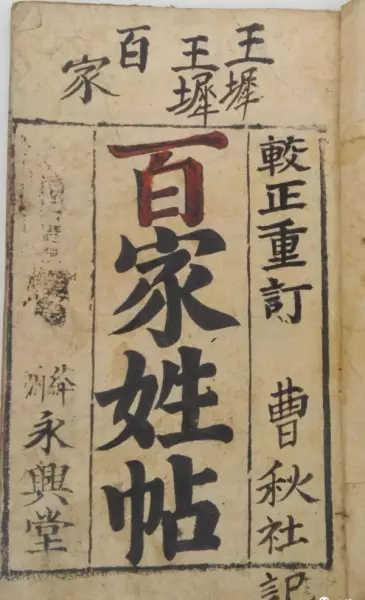 王墀
王墀
百
家
較正重訂
曹秋社記
百家姓帖
絳州
永興堂